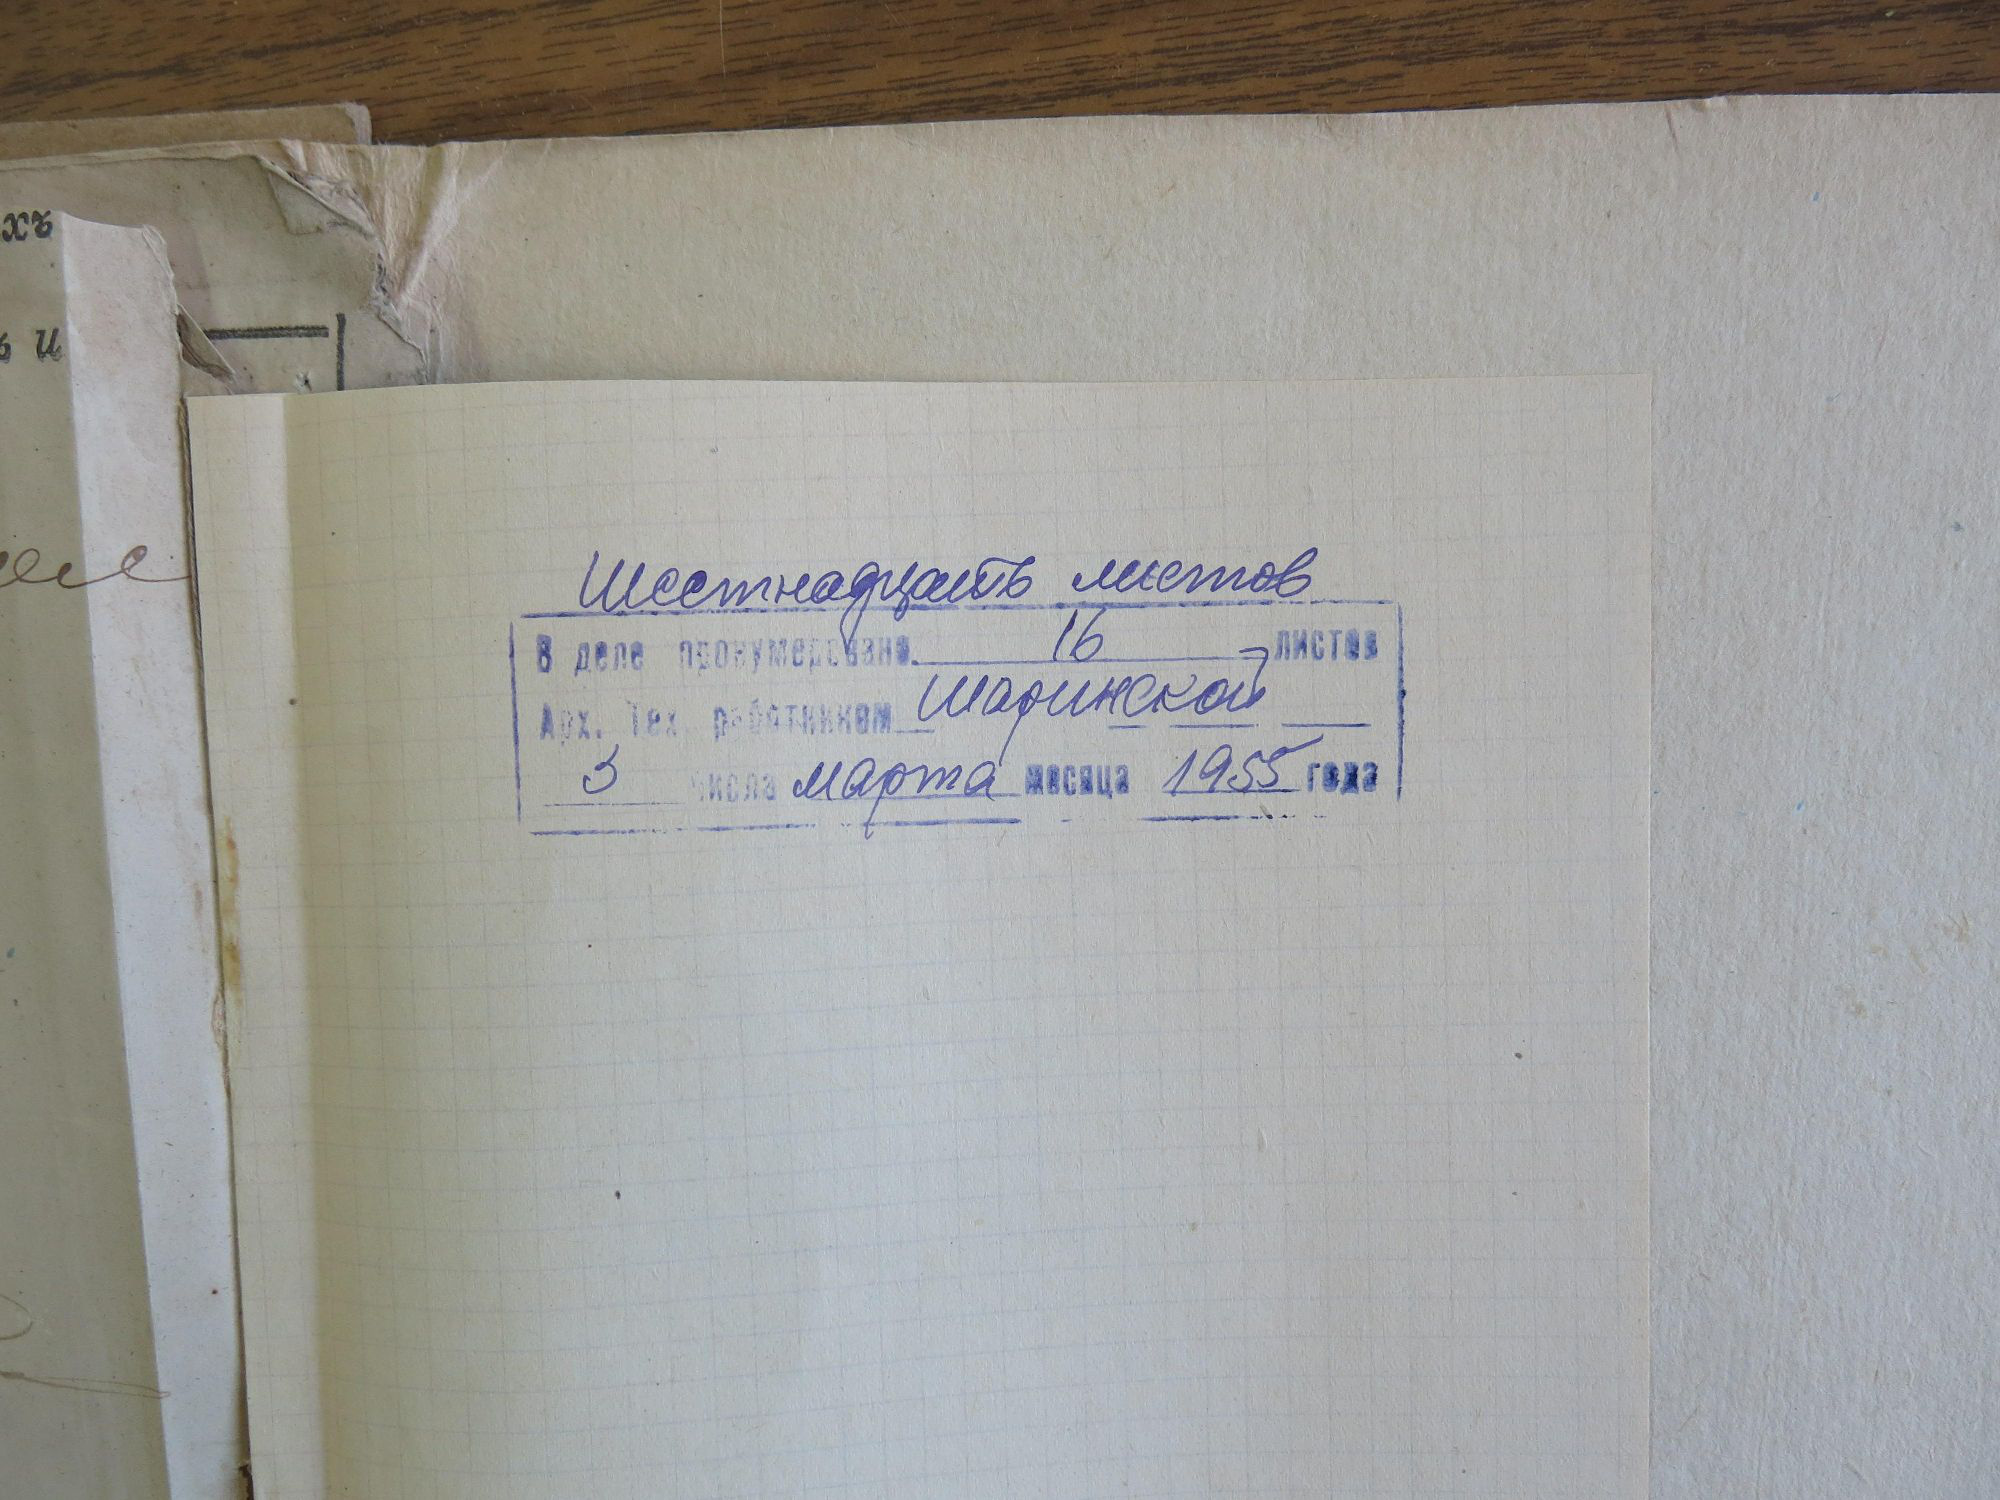 хъ
ь и
Шестнадцать листов
В деле пронумеровано 16 листов
Арх. Тех. работником Шаринской
3 числа марта месяца 1955 года